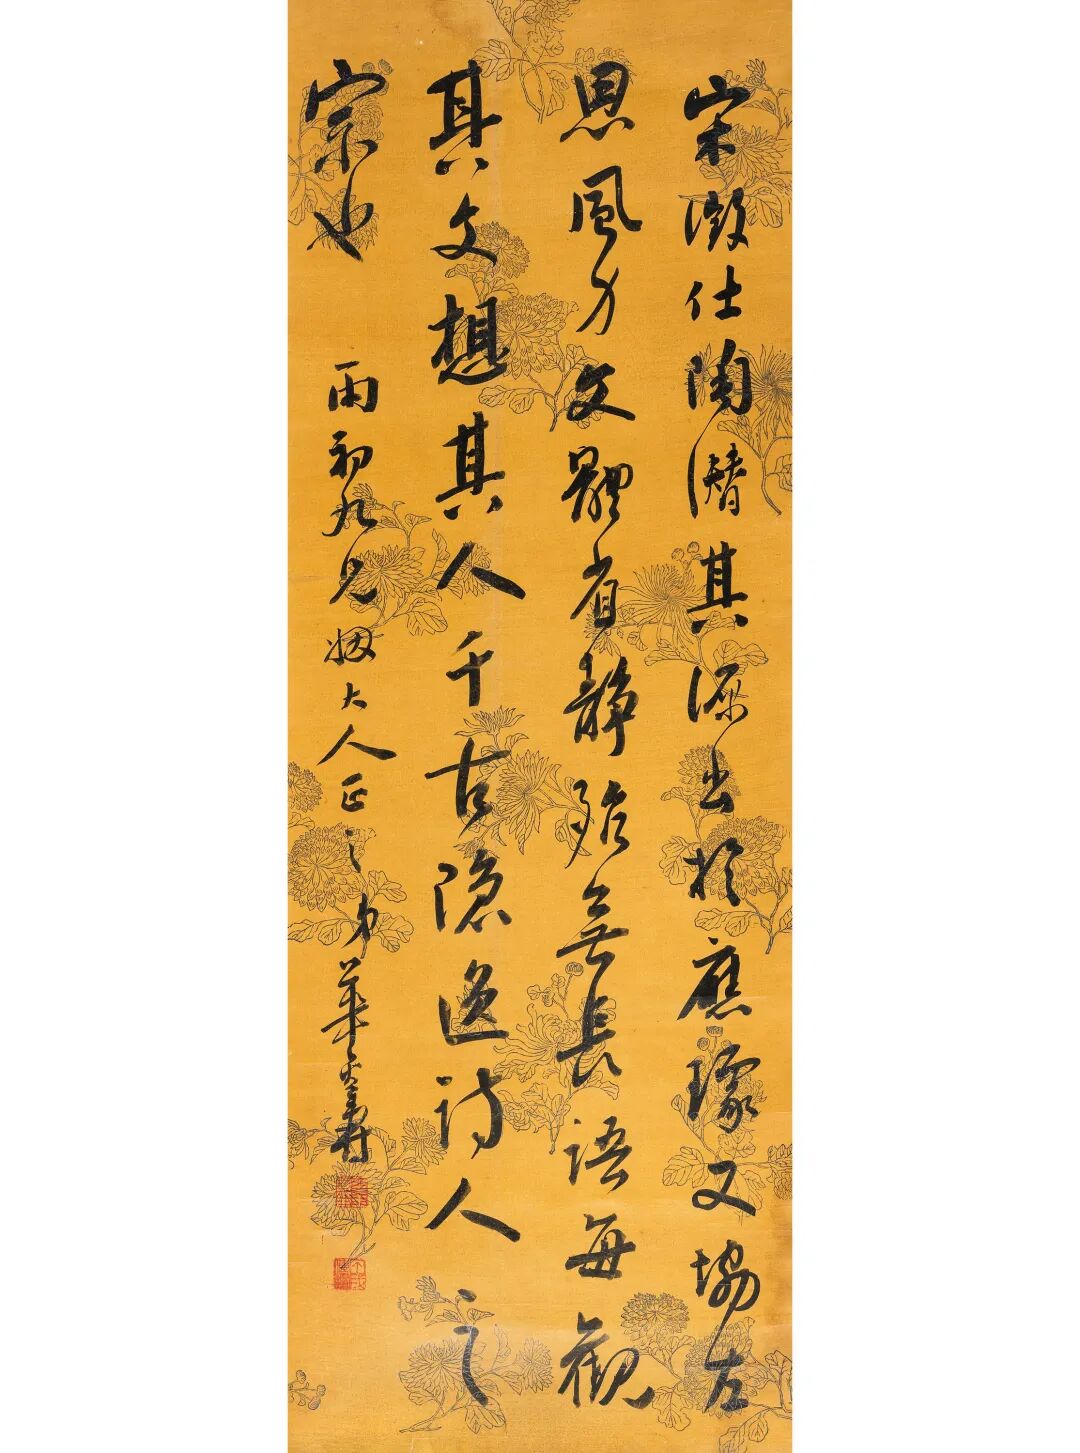 宋徵仕陶潛其源出於應璩又協左
思風力文體省静殆無長語每觀
其文想其人千古隱逸詩人之
宗也
雨初九兄姻大人正之弟華世奎